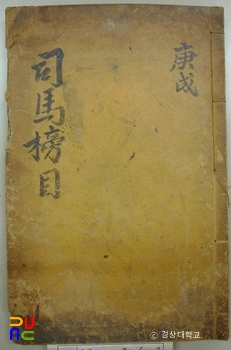 庚戌
司馬榜目
PUAC
ⓒ 경상대학교